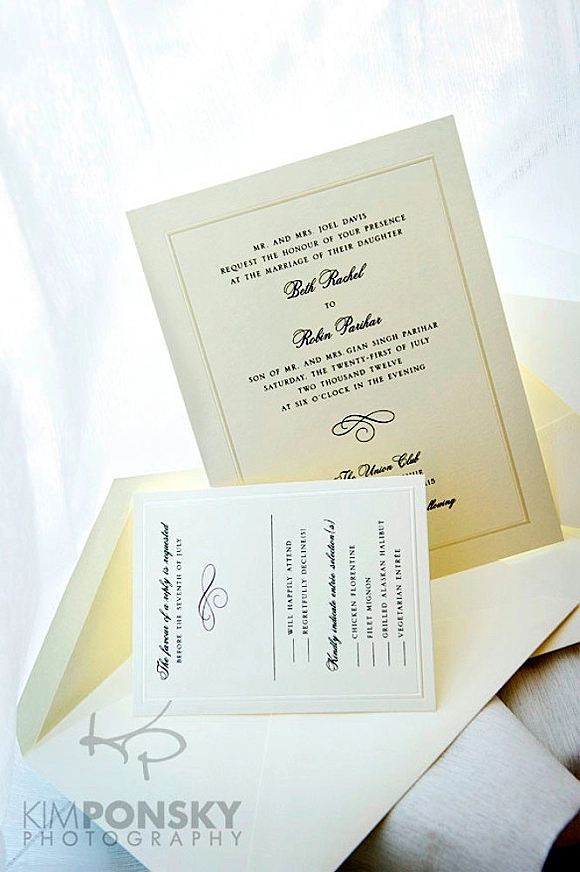 MR. AND MRS. JOEL DAVIS
REQUEST THE HONOUR OF YOUR PRESENCE
AT THE MARRIAGE OF THEIR DAUGHTER
Beth Rachel
TO
Robin Parihar
SON OF MR. AND MRS. GIAN SINGH PARIHAR
SATURDAY, THE TWENTY-FIRST OF JULY
TWO THOUSAND TWELVE
AT SIX O'CLOCK IN THE EVENING
The Union Club
following
The favour of a reply is requested
BEFORE THE SEVENTH OF JULY
WILL HAPPILY ATTEND
REGRETFULLY DECLINE(S)
Kindly indicate entrée selection(s)
CHICKEN FLORENTINE
FILET MIGNON
GRILLED ALASKAN HALIBUT
VEGETARIAN ENTRÉE
KIMPONSKY
PHOTOGRAPHY